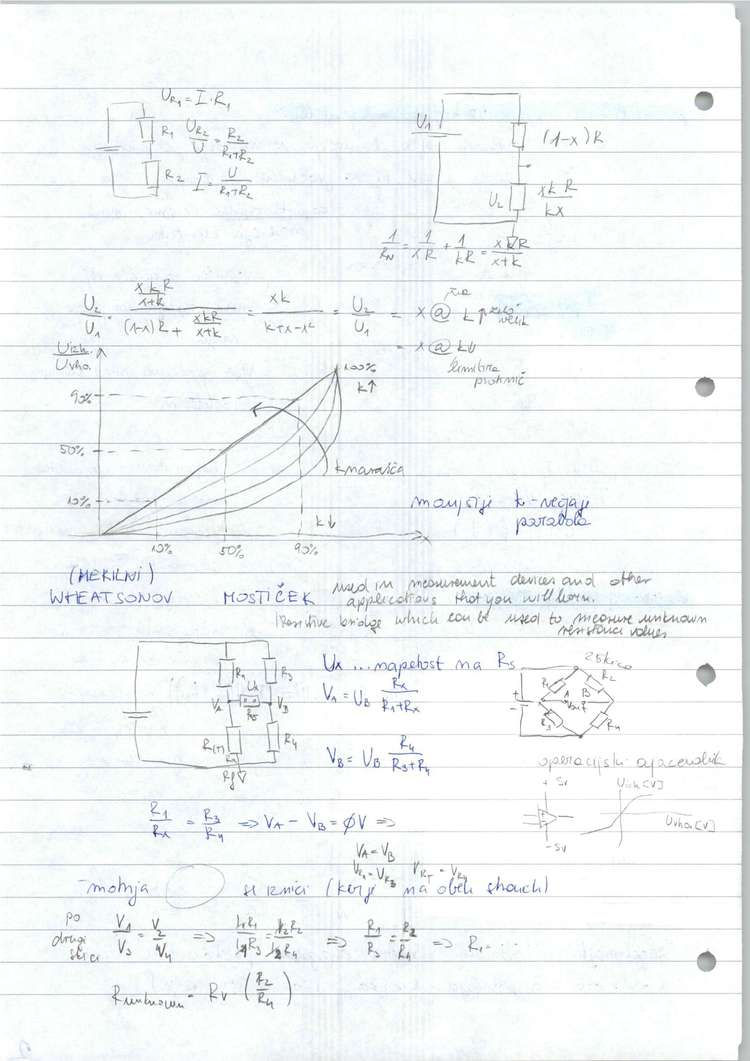 U_R1 = I · R_1
R_1 U_R2/U = R_2/(R_1+R_2)
R_2 I = U/(R_1+R_2)
U_1 (1-x)R
U_2 xkR/kx
1/R_N = 1/xR + 1/kR = xkR/(x+k)
U_2/U_1 = (xkR/(x+k))/((1-x)R + xkR/(x+k)) = xk/(k+x-x²) = U_2/U_1 = x @ k↑ zelo velik
= x @ k↓
Uizh./Uvho.
100%
k↑
90%
50%
k narašča
10%
k↓
10% 50% 90% x
manjši je k - večja
parabola
(MERILNI)
WHEATSONOV MOSTIČEK used in measurement devices and other
applications that you will learn.
Resistive bridge which can be used to measure unknown
resistance values
R_1 R_3
V_A Ux V_B
R_5
R(T) R_x R_4
Ux ... napetost na R_5
V_A = U_B R_x/(R_1+R_x)
V_B = U_B R_4/(R_3+R_4)
R_1 R_2
A B
R_3 R_4
operacijski ojačevalnik
+5V
-5V
Uizh [V]
Uvhod [V]
R_1/R_x = R_3/R_4 => V_A - V_B = ∅V =>
V_A = V_B
V_R1 = V_R3 V_RT = V_R4
motnja (ker je na obeh straneh)
po
drugi
skici
V_1/V_3 = V_2/V_4 => I_1R_1/I_1R_3 = I_2R_2/I_2R_4 => R_1/R_3 = R_2/R_4 => R_1 = ...
Runknown = R_V (R_2/R_4)